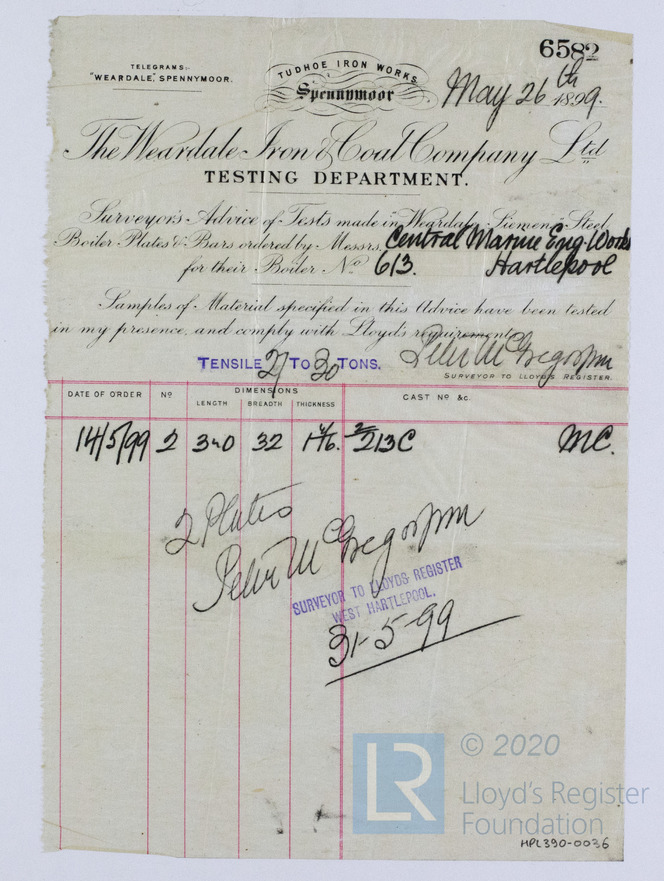 6582
TELEGRAMS:-
"WEARDALE," SPENNYMOOR.
TUDHOE IRON WORKS
Spennymoor
May 26th 1899.
The Weardale Iron & Coal Company Ltd
TESTING DEPARTMENT.
Surveyor's Advice of Tests made in Weardale Siemens Steel
Boiler Plates & Bars ordered by Messrs. Central Marine Eng. Works
for their Boiler No 613. Hartlepool
Samples of Material specified in this Advice have been tested
in my presence, and comply with Lloyd's requirements
TENSILE 27 TO 30 TONS.
SURVEYOR TO LLOYD'S REGISTER.
DATE OF ORDER No DIMENSIONS CAST No &c.
LENGTH BREADTH THICKNESS
14/5/99 2 32 213C MC.
2 Plates
SURVEYOR TO LLOYDS REGISTER
WEST HARTLEPOOL.
31-5-99
LR
© 2020
Lloyd's Register
Foundation
HPL390-0036